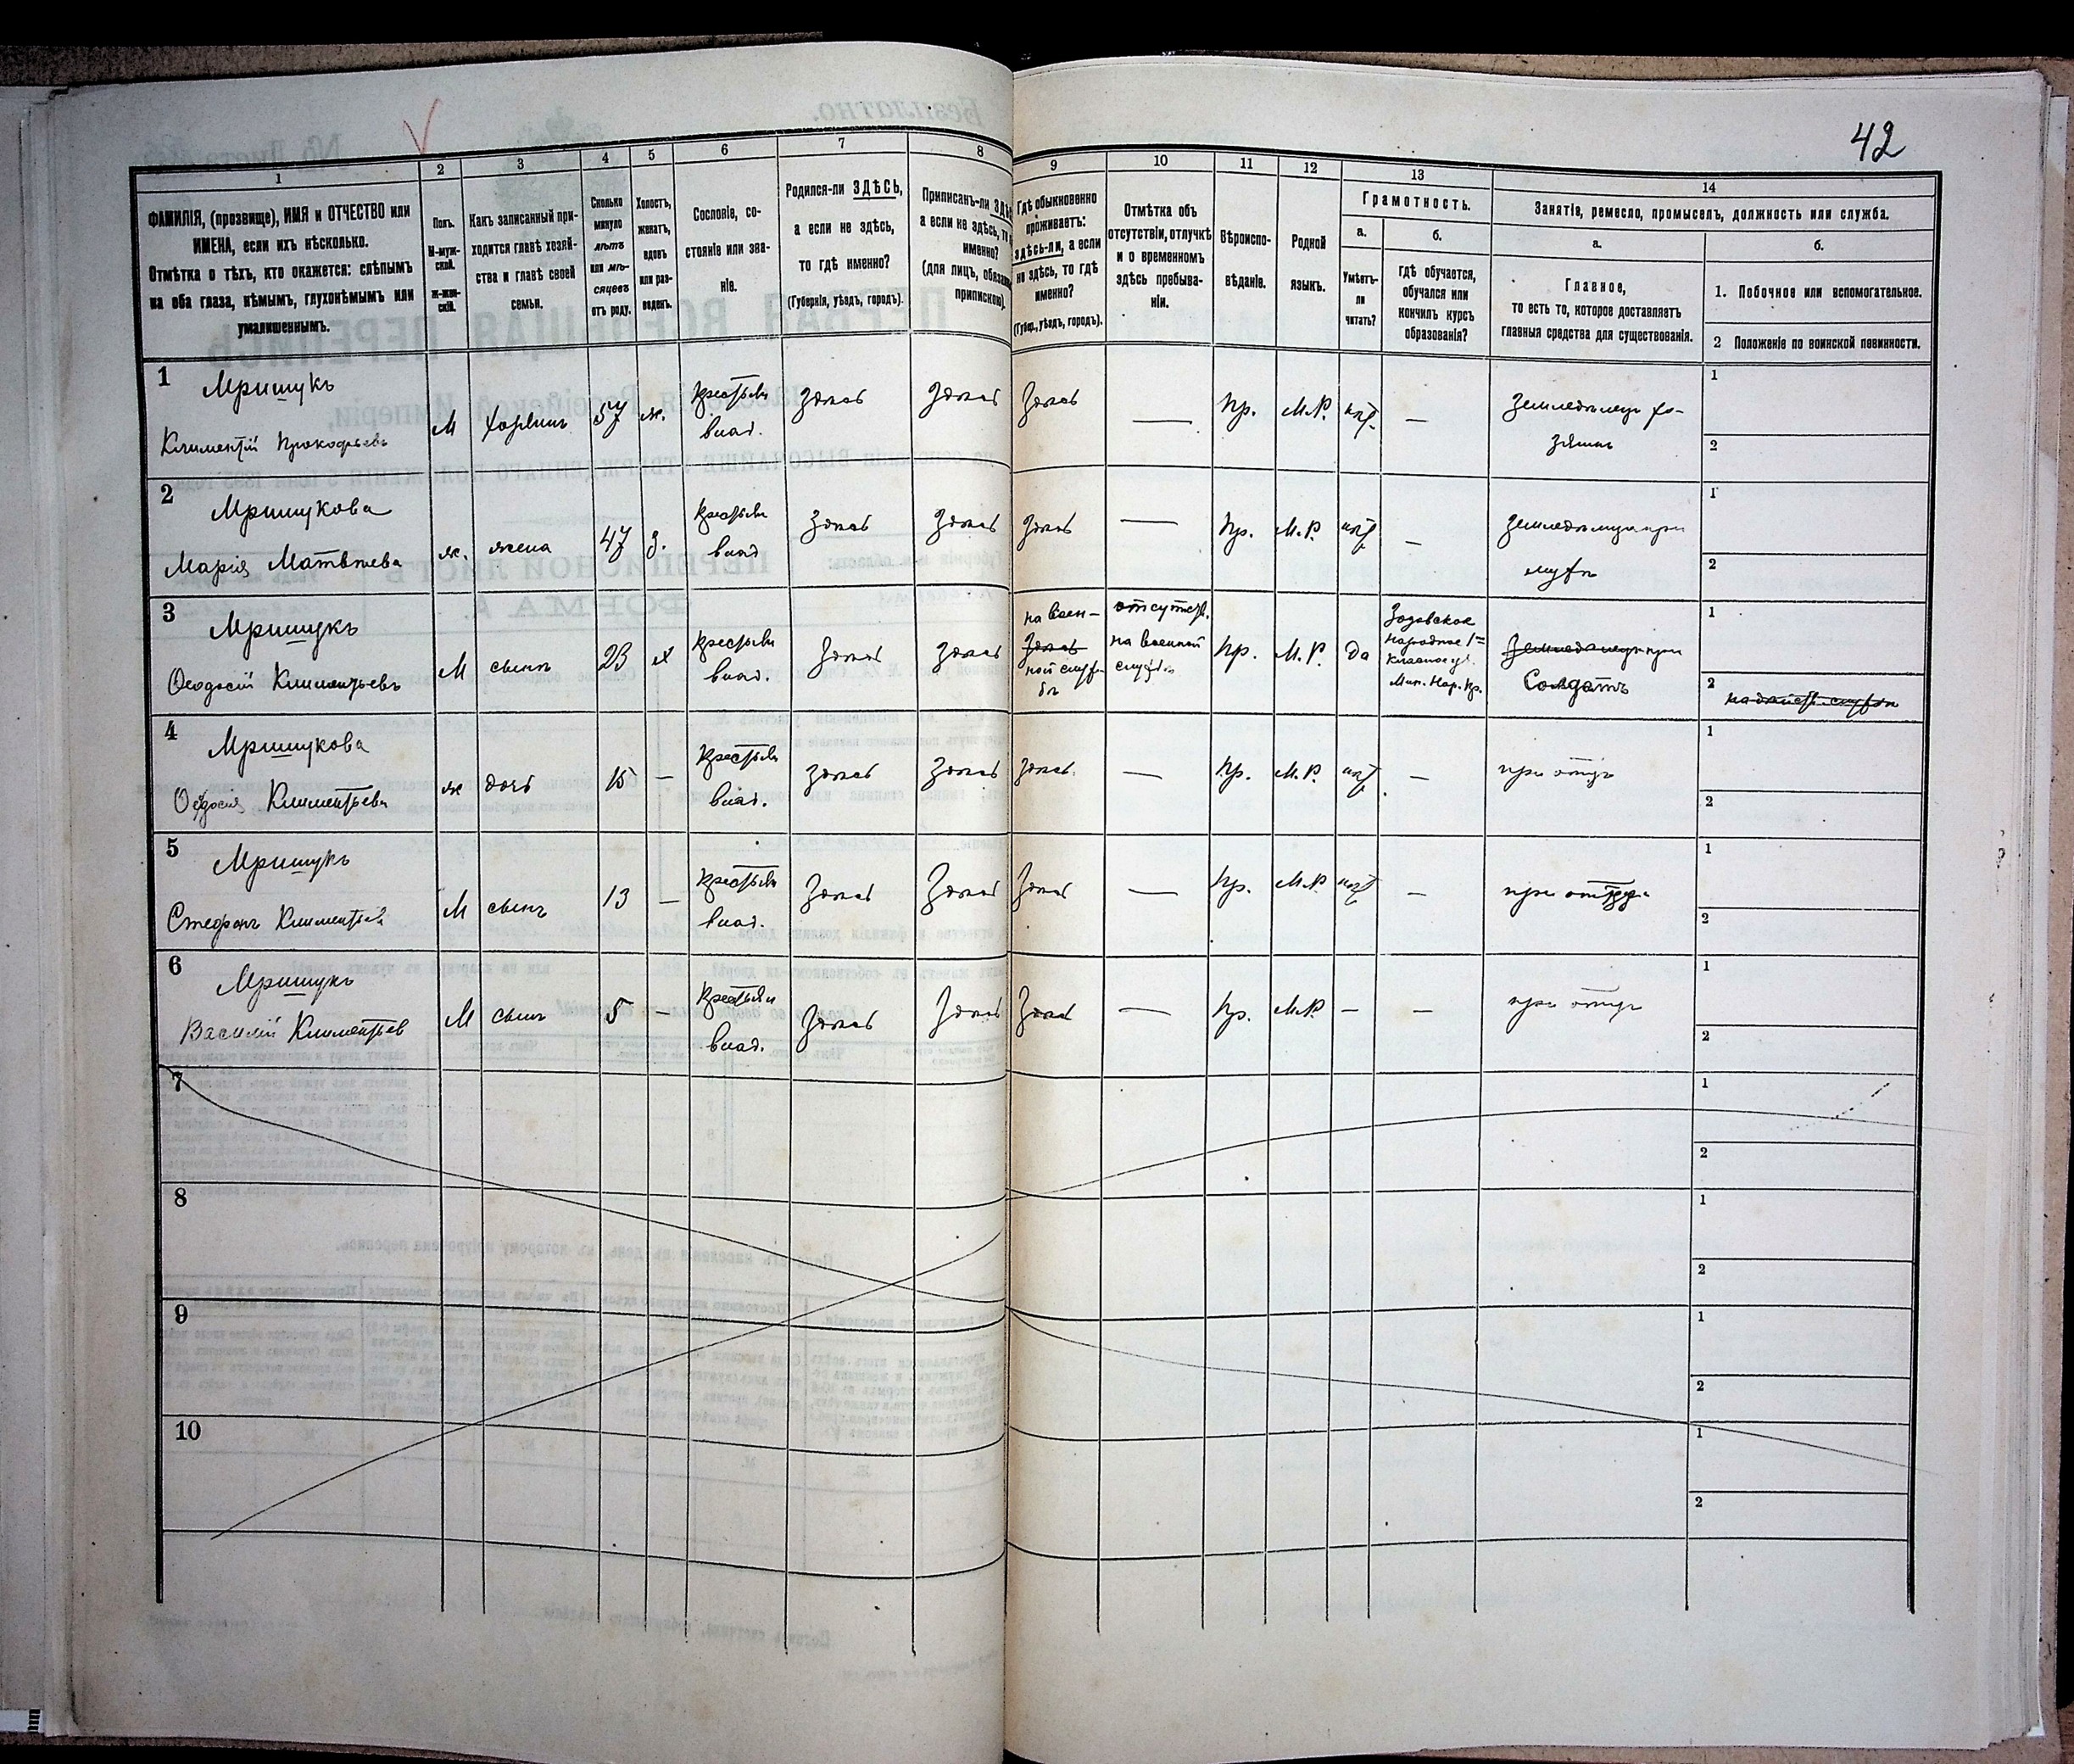 42
1
2
3
4
5
6
7
8
9
10
11
12
13
14
ФАМИЛІЯ, (прозвище), ИМЯ и ОТЧЕСТВО или
ИМЕНА, если ихъ нѣсколько.
Отмѣтка о тѣхъ, кто окажется: слѣпымъ
на оба глаза, нѣмымъ, глухонѣмымъ или
умалишеннымъ.
Полъ.
М-муж-
ской.
Ж-жен-
скій.
Какъ записанный при-
ходится главѣ хозяй-
ства и главѣ своей
семьи.
Сколько
минуло
лѣтъ
или мѣ-
сяцевъ
отъ роду.
Холостъ,
женатъ,
вдовъ
или раз-
веденъ.
Сословіе, со-
стояніе или зва-
ніе.
Родился-ли ЗДѢСЬ,
а если не здѣсь,
то гдѣ именно?
(Губернія, уѣздъ, городъ).
Приписанъ-ли
а если не здѣсь, то
именно?
(для лицъ,
припискою).
Гдѣ обыкновенно
проживаетъ:
здѣсь-ли, а если
не здѣсь, то гдѣ
именно?
(Губер., уѣздъ, городъ).
Отмѣтка объ
отсутствіи, отлучкѣ
и о временномъ
здѣсь пребыва-
ніи.
Вѣроиспо-
вѣданіе.
Родной
языкъ.
Грамотность.
а.
Умѣетъ-
ли
читать?
б.
гдѣ обучается,
обучался или
кончилъ курсъ
образованія?
Занятіе, ремесло, промыселъ, должность или служба.
а.
Главное,
то есть то, которое доставляетъ
главныя средства для существованія.
б.
1. Побочное или вспомогательное.
2 Положеніе по воинской повинности.
1 Мришукъ
Климентій Прокофьевъ
М
хозяинъ
57
ж.
крестьян
влад.
здѣсь
здѣсь
здѣсь
—
Пр.
М.Р.
нѣт
—
Земледѣлецъ хо-
зяинъ
1
2
2 Мришукова
Марія Матвѣева
ж.
жена
47
з.
крестьян
влад
здѣсь
здѣсь
здѣсь
—
Пр.
М.Р.
нѣт
—
муже
1
2
3 Мришукъ
Ѳеодосій Климентьевъ
М
сынъ
23
х
крестьян
влад.
здѣсь
здѣсь
на воен-
здѣсь
ной служ-
бѣ
отсутств.
на военной
службѣ
Пр.
М.Р.
да
народное 1=
классное уч.
Мин. Нар. Пр.
Солдатъ
1
2
4 Мришукова
Климентьева
ж
дочь
15
—
крестьян
влад.
здѣсь
здѣсь
здѣсь.
—
Пр.
М.Р.
нѣт
—
при отцѣ
1
2
5 Мришукъ
Стефанъ Климентьев
М
сынъ
13
—
крестьян
влад.
здѣсь
здѣсь
здѣсь
—
Пр.
М.Р
нѣт
—
при
1
2
6 Мришукъ
Василій Климентьев
М
сынъ
5
—
крестьян
влад.
здѣсь
здѣсь
здѣсь
—
Пр.
М.Р.
—
—
при отцѣ
1
2
7
1
2
8
1
2
9
1
2
10
1
2